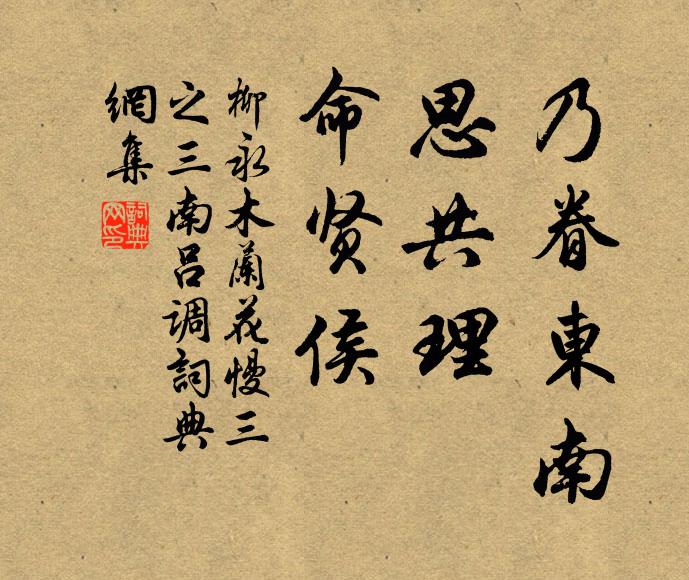 乃眷東南
思共理
命贤侯
柳永木蘭花慢三
之三南吕调詞典
網集
詞典
网印